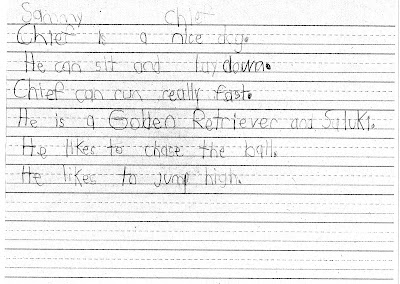 Sammy Chief
Chief is a nice dog.
He can sit and lay down.
Chief can run really fast.
He is a Golden Retriever and Saluki.
He likes to chase the ball.
He likes to jump high.